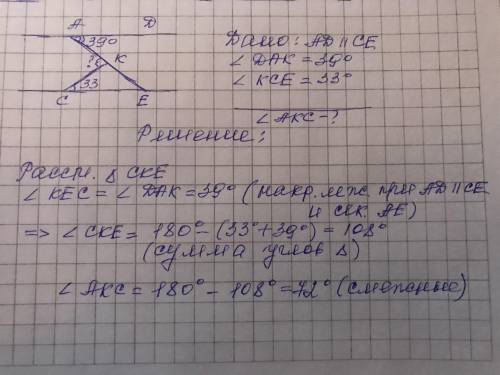 A D
39°
? K
33
C E
Дано: AD || CE
∠ DAK = 39°
∠ KCE = 33°
∠ AKC - ?
Решение:
Рассм. Δ CKE
∠ KEC = ∠ DAK = 39° (накр. леж. при AD || CE
и сек. AE)
=> ∠ CKE = 180° - (33° + 39°) = 108°
(сумма углов Δ)
∠ AKC = 180° - 108° = 72° (смежные)